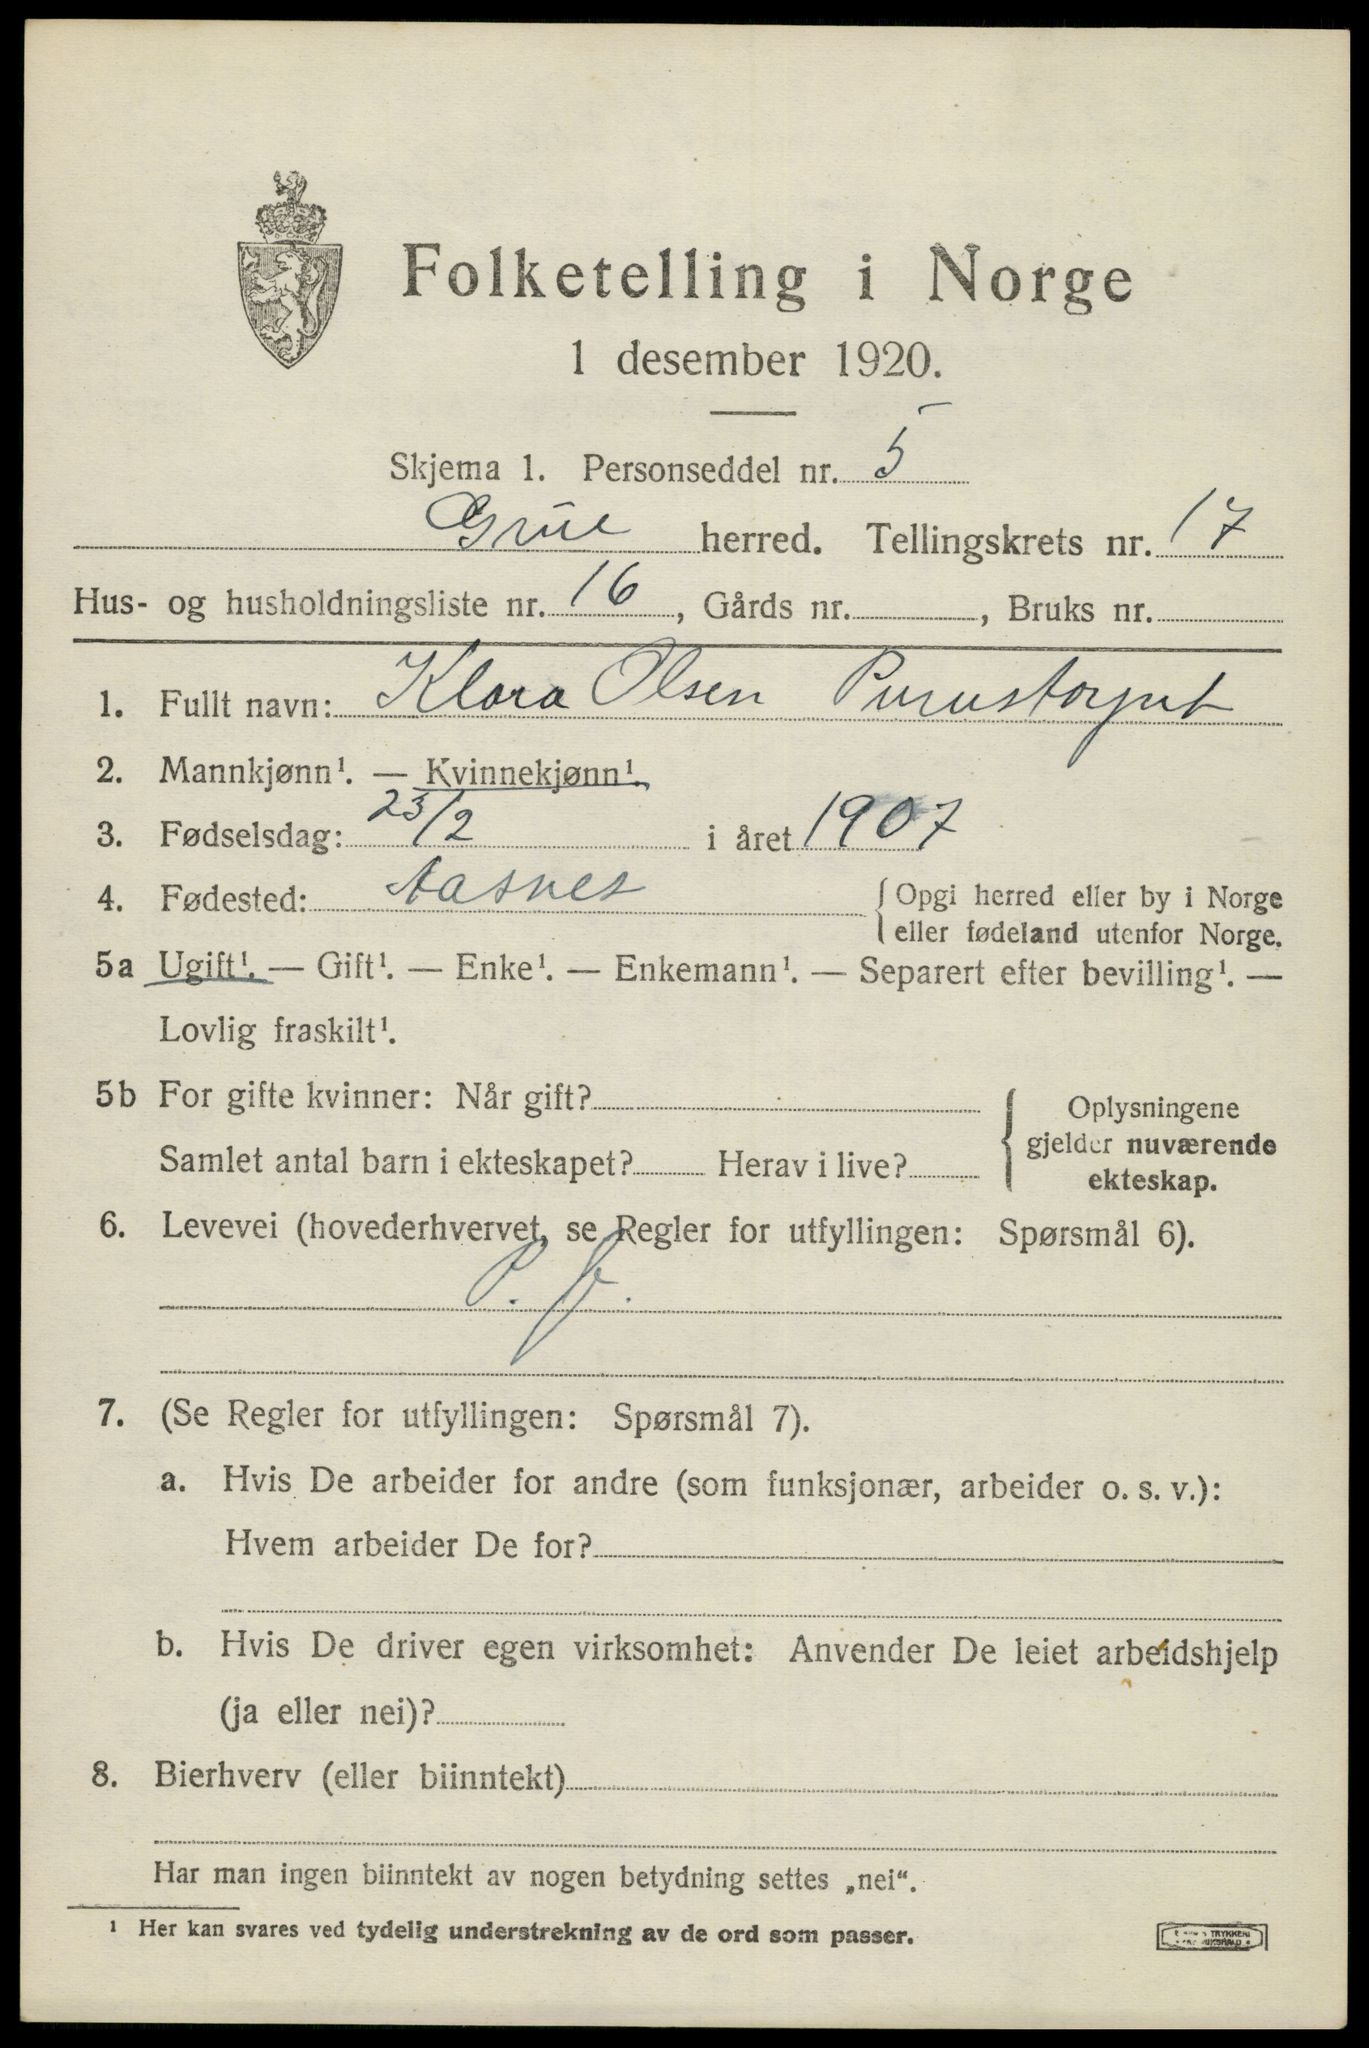 Folketelling i Norge
1 desember 1920.
Skjema 1. Personseddel nr. 5
Grue herred. Tellingskrets nr. 17
Hus- og husholdningsliste nr. 16, Gårds nr. , Bruks nr.
1. Fullt navn: Klara Olsen Purustorpet
2. Mannkjønn¹. — Kvinnekjønn¹.
3. Fødselsdag: 23/2 i året 1907
4. Fødested: Aasnes { Opgi herred eller by i Norge
eller fødeland utenfor Norge.
5a Ugift¹. — Gift¹. — Enke¹. — Enkemann¹. — Separert efter bevilling¹. —
Lovlig fraskilt¹.
5b For gifte kvinner: Når gift?
Samlet antal barn i ekteskapet? Herav i live?
Oplysningene
gjelder nuværende
ekteskap.
6. Levevei (hovederhvervet, se Regler for utfyllingen: Spørsmål 6).
7. (Se Regler for utfyllingen: Spørsmål 7).
a. Hvis De arbeider for andre (som funksjonær, arbeider o. s. v.):
Hvem arbeider De for?
b. Hvis De driver egen virksomhet: Anvender De leiet arbeidshjelp
(ja eller nei)?
8. Bierhverv (eller biinntekt)
Har man ingen biinntekt av nogen betydning settes „nei“.
¹ Her kan svares ved tydelig understrekning av de ord som passer.